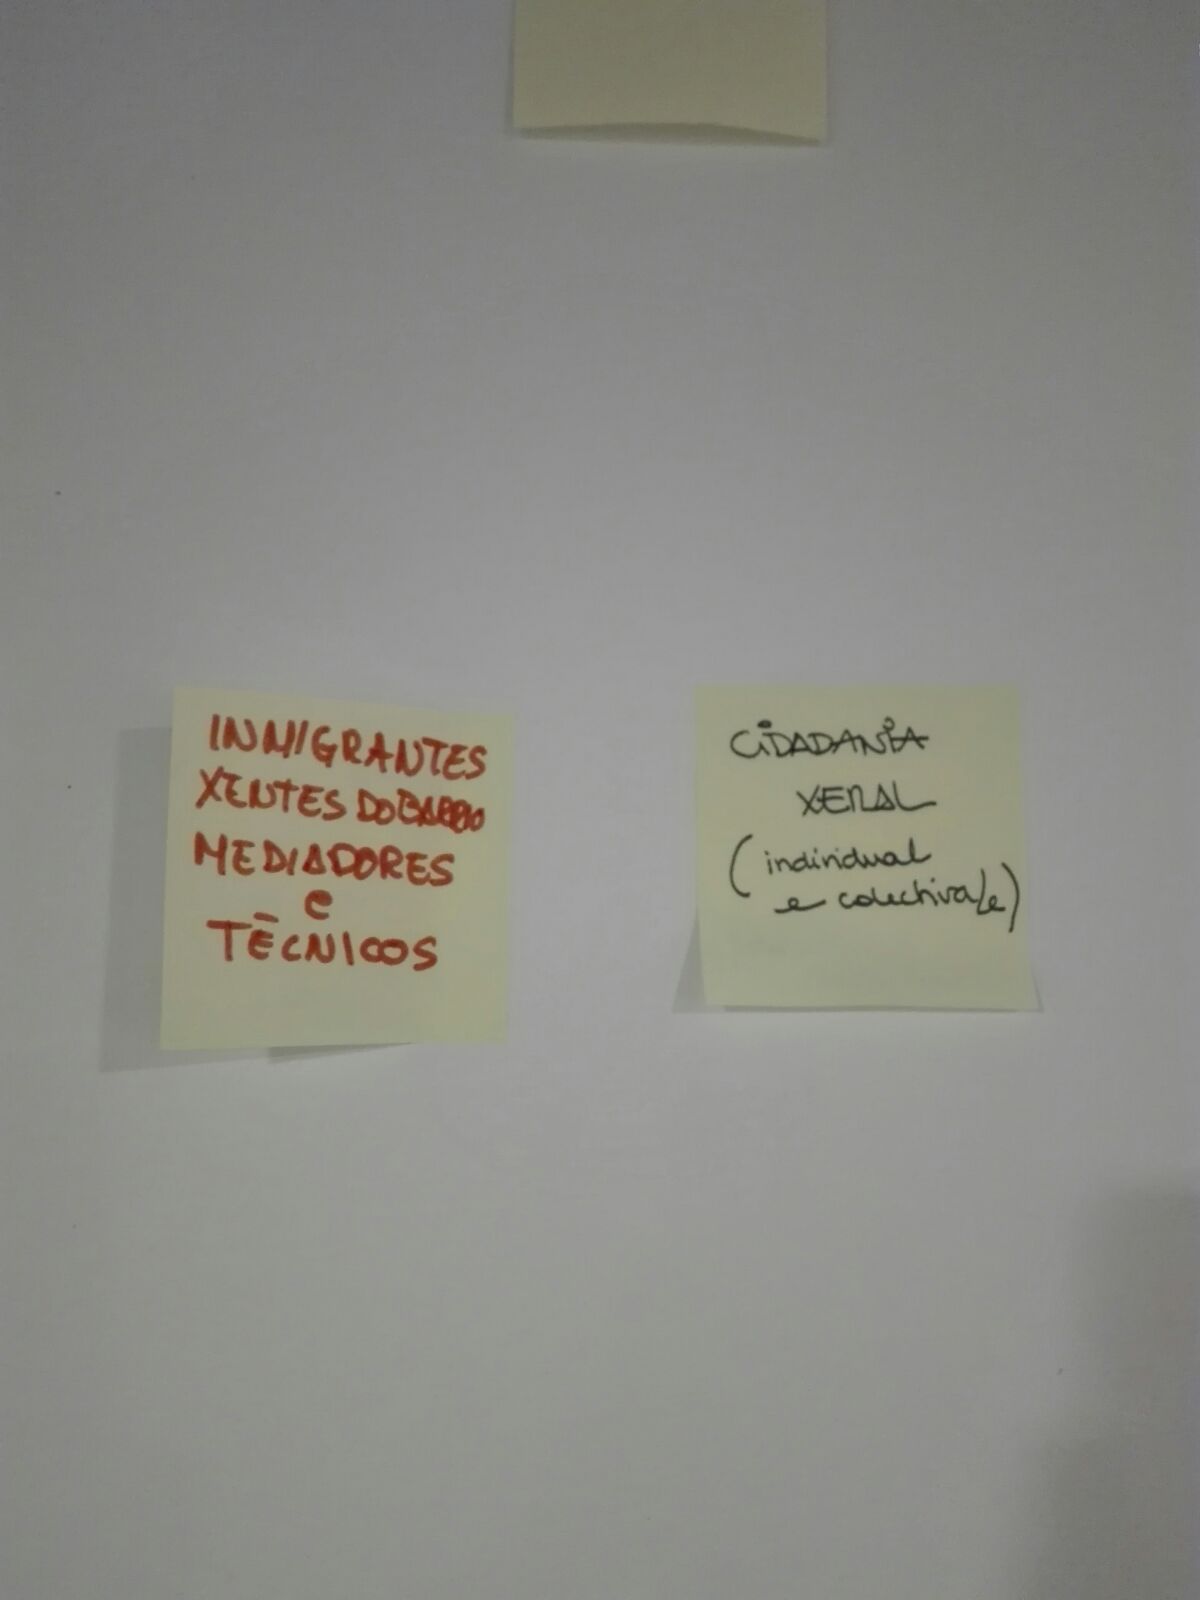 INMIGRANTES
XENTES DO BARRIO
MEDIADORES
e
TÉCNICOS
CIDADANÍA
XERAL
(individual
e colectiva/e)